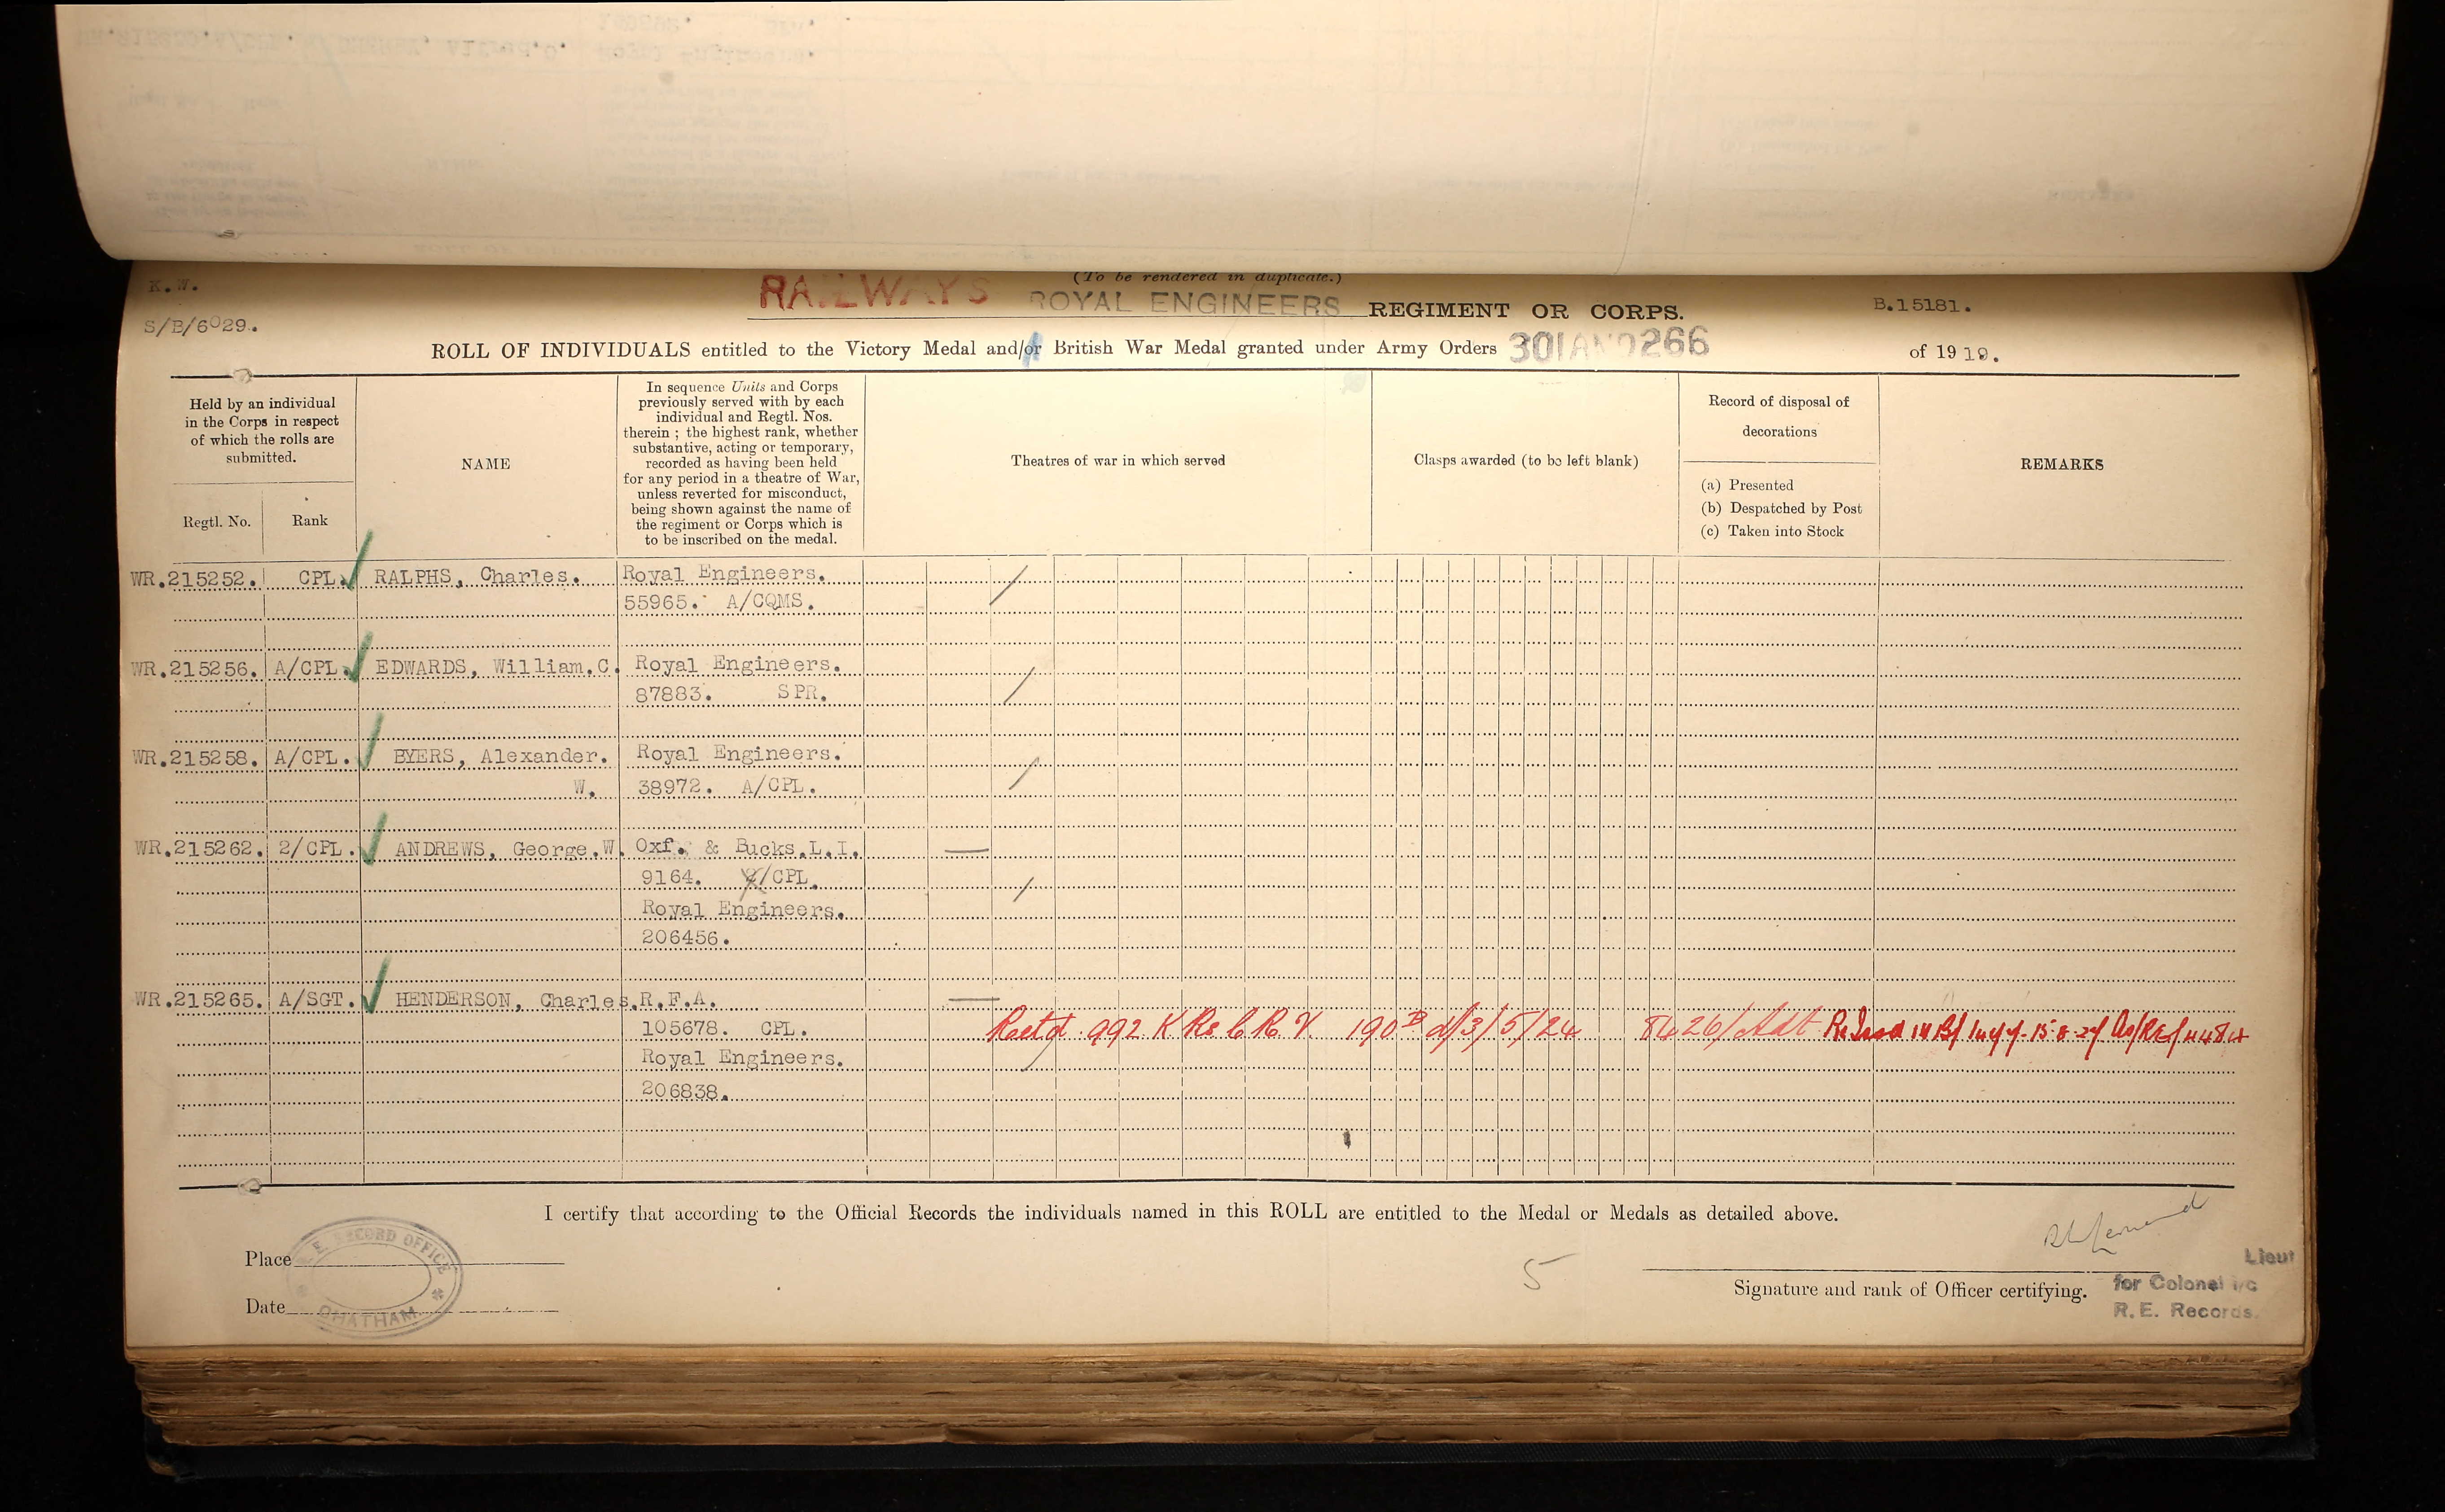 K.W.
(To be rendered in duplicate.)
RAILWAYS ROYAL ENGINEERS REGIMENT OR CORPS.
B.15181.
S/B/6029.
ROLL OF INDIVIDUALS entitled to the Victory Medal and/or British War Medal granted under Army Orders 301 AND 266 of 1919.
Held by an individual
in the Corps in respect
of which the rolls are
submitted.
Regtl. No. Rank
NAME
In sequence Units and Corps
previously served with by each
individual and Regtl. Nos.
therein ; the highest rank, whether
substantive, acting or temporary,
recorded as having been held
for any period in a theatre of War,
unless reverted for misconduct,
being shown against the name of
the regiment or Corps which is
to be inscribed on the medal.
Theatres of war in which served
Clasps awarded (to be left blank)
Record of disposal of
decorations
(a) Presented
(b) Despatched by Post
(c) Taken into Stock
REMARKS
WR.215252. CPL. RALPHS, Charles. Royal Engineers.
55965. A/CQMS.
WR.215256. A/CPL. EDWARDS, William.C. Royal Engineers.
87883. SPR.
WR.215258. A/CPL. BYERS, Alexander. Royal Engineers.
W. 38972. A/CPL.
WR.215262. 2/CPL. ANDREWS, George.W. Oxf. & Bucks.L.I.
9164. 2/CPL.
Royal Engineers.
206456.
WR.215265. A/SGT. HENDERSON, Charles. R.F.A.
105678. CPL. Retd 992 K Rs 190 d/3/5/24 8426/Adt
Royal Engineers.
206838.
I certify that according to the Official Records the individuals named in this ROLL are entitled to the Medal or Medals as detailed above.
Place
R.E. RECORD OFFICE
CHATHAM
Date
5
Signature and rank of Officer certifying.
Lieut
for Colonel i/c
R.E. Records.